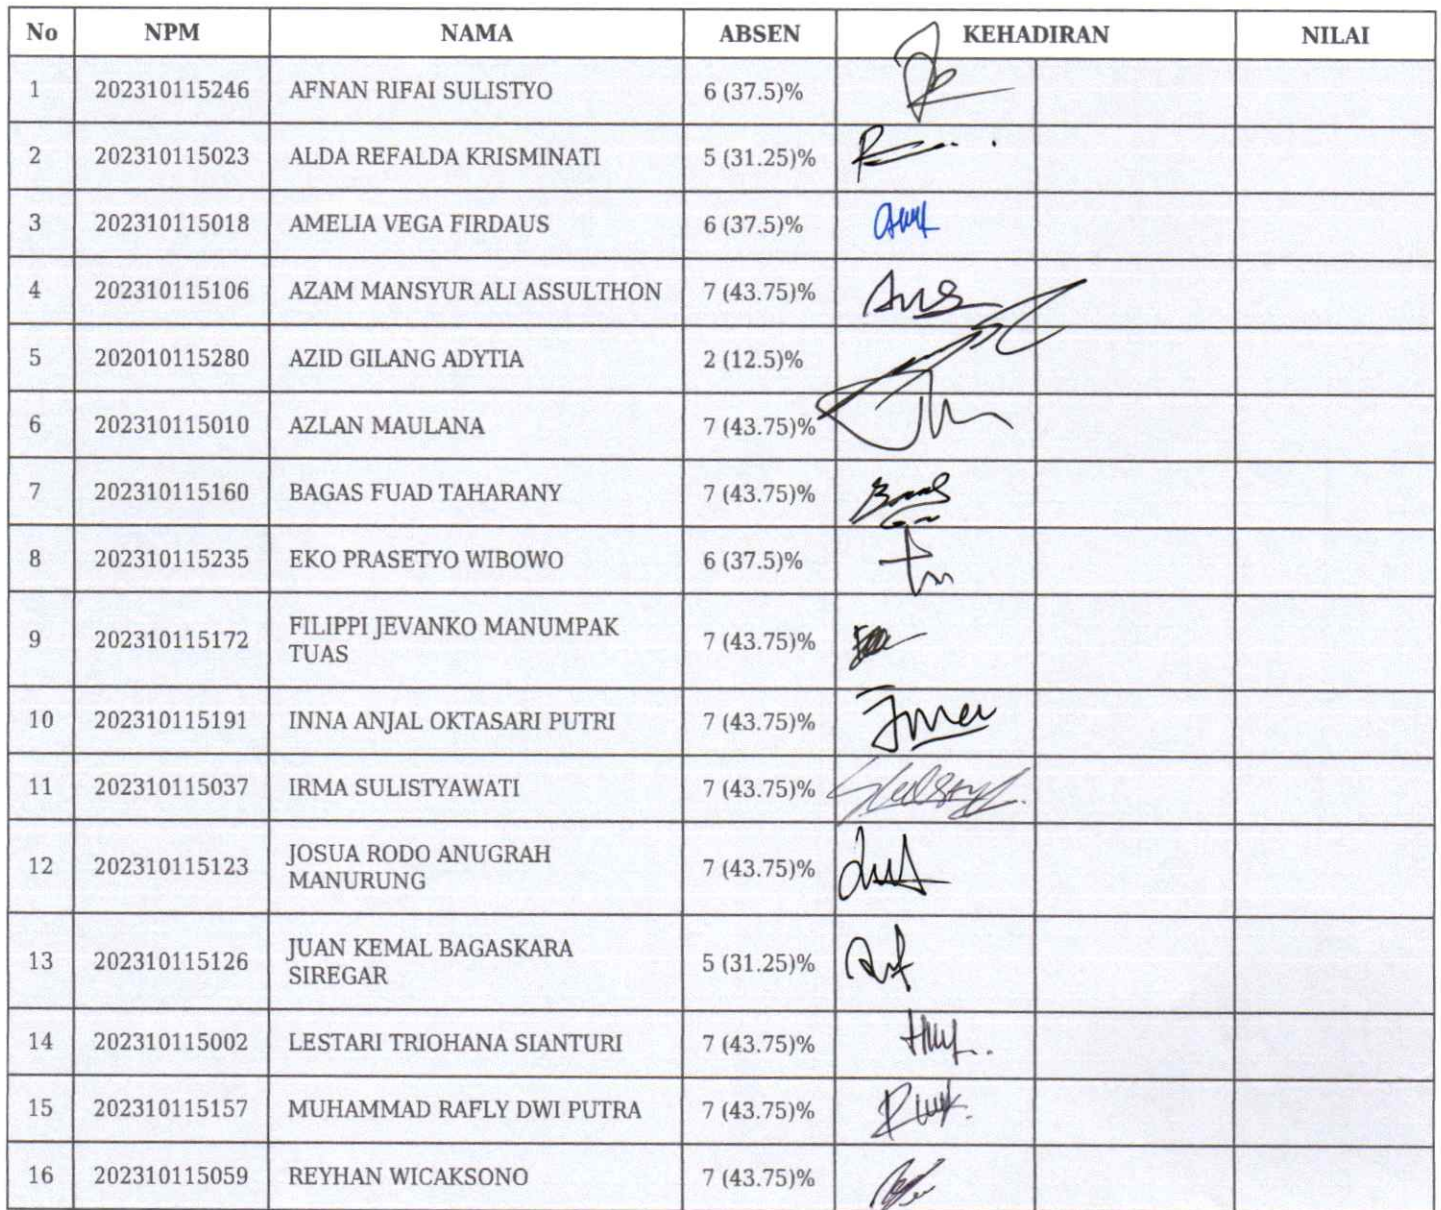 No NPM NAMA ABSEN KEHADIRAN NILAI
1 202310115246 AFNAN RIFAI SULISTYO 6 (37.5)%
2 202310115023 ALDA REFALDA KRISMINATI 5 (31.25)%
3 202310115018 AMELIA VEGA FIRDAUS 6 (37.5)%
4 202310115106 AZAM MANSYUR ALI ASSULTHON 7 (43.75)%
5 202010115280 AZID GILANG ADYTIA 2 (12.5)%
6 202310115010 AZLAN MAULANA 7 (43.75)%
7 202310115160 BAGAS FUAD TAHARANY 7 (43.75)%
8 202310115235 EKO PRASETYO WIBOWO 6 (37.5)%
9 202310115172 FILIPPI JEVANKO MANUMPAK
TUAS 7 (43.75)%
10 202310115191 INNA ANJAL OKTASARI PUTRI 7 (43.75)%
11 202310115037 IRMA SULISTYAWATI 7 (43.75)%
12 202310115123 JOSUA RODO ANUGRAH
MANURUNG 7 (43.75)%
13 202310115126 JUAN KEMAL BAGASKARA
SIREGAR 5 (31.25)%
14 202310115002 LESTARI TRIOHANA SIANTURI 7 (43.75)%
15 202310115157 MUHAMMAD RAFLY DWI PUTRA 7 (43.75)%
16 202310115059 REYHAN WICAKSONO 7 (43.75)%